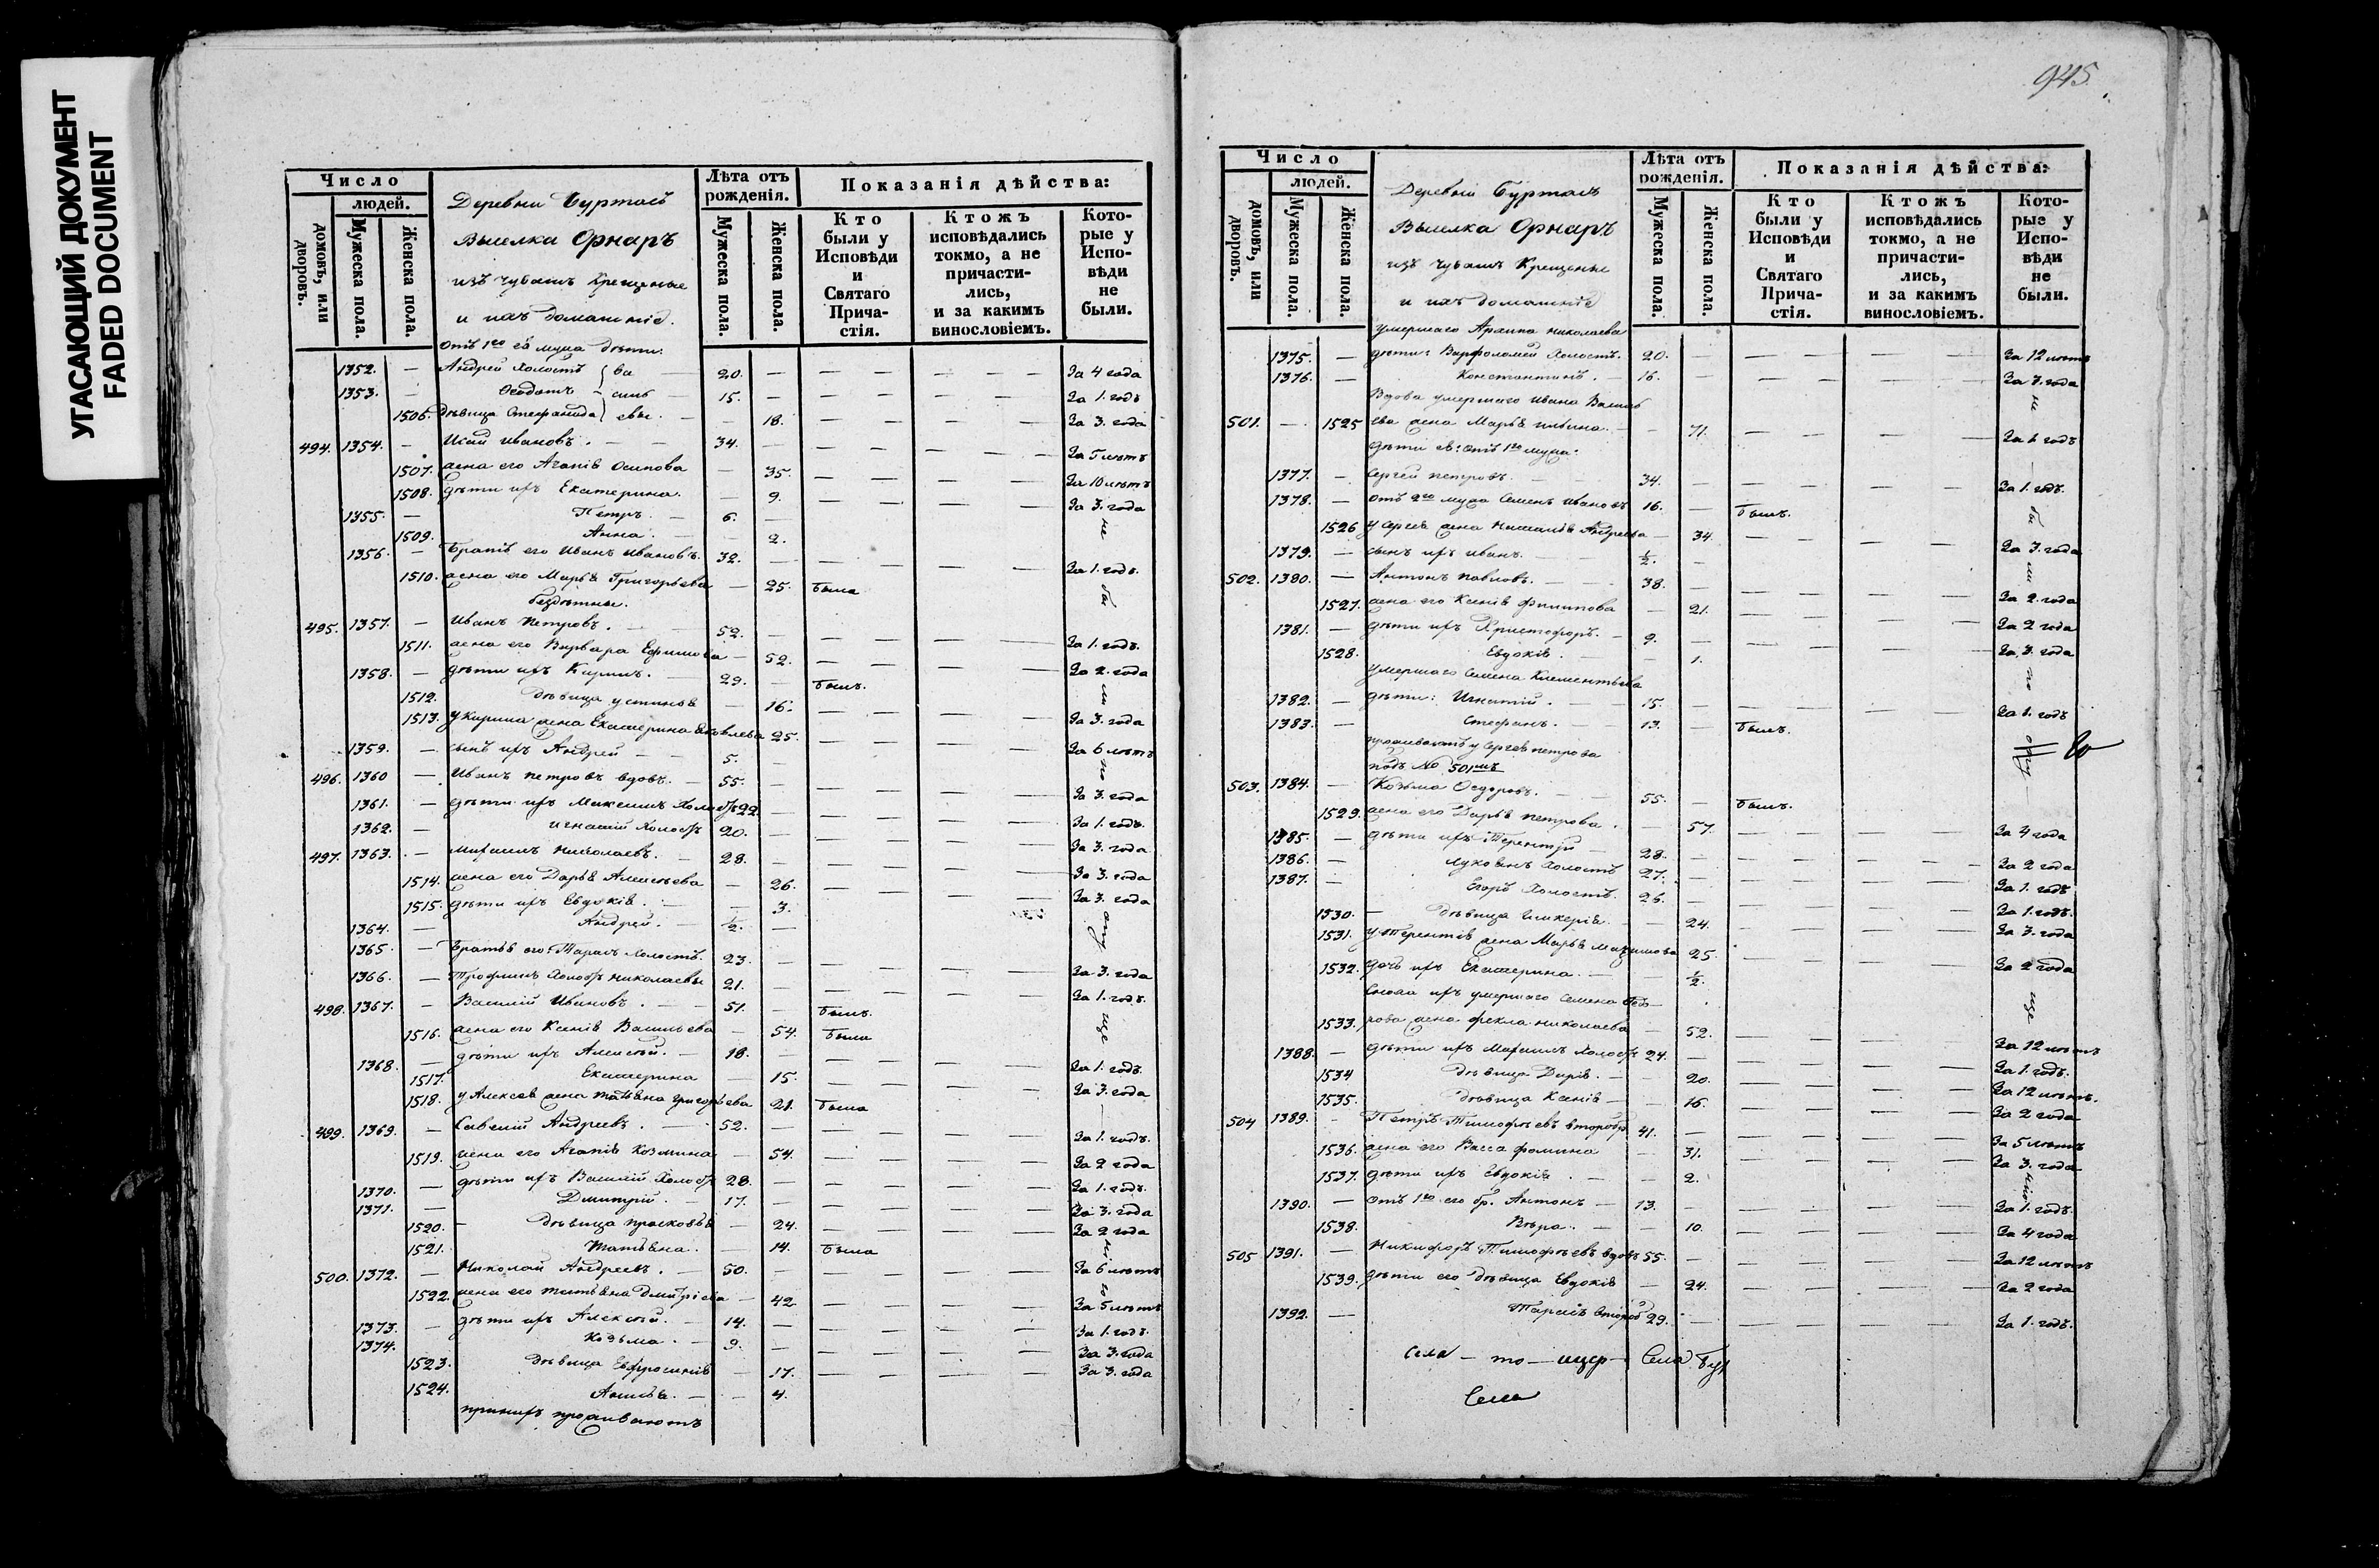 УГАСАЮЩИЙ ДОКУМЕНТ
FADED DOCUMENT
Число
людей.
домовъ, или дворовъ.
Мужеска пола.
Женска пола.
Деревни Буртасъ
Выселка Орнаръ
изъ чувашъ Крещеные
и ихъ домашніе.
Лѣта отъ рожденія.
Мужеска пола.
Женска пола.
Показанія дѣйства:
Кто были у Исповѣди и Святаго Прича-стія.
Ктожъ исповѣдались токмо, а не причасти-лись, и за какимъ винословіемъ.
Кото-рые у Испо-вѣди не были.
Отъ 1го ея мужа дѣти:
1352. — Андрей холостъ 20. — За 4 года
1353. — Ѳеодотъ 15. — За 1. годъ
1506. дѣвица Стефанида — 18. За 3. года
494. 1354. — Ивановъ. 34. За 5 лѣтъ
1507. жена его Агапія Осипова — 35. За 10 лѣтъ
1508. дѣти ихъ Екатерина. — 9. За 3. года
1355. — Петръ. 6. —
1509. Анна. — 2.
1356. — Братъ его Иванъ Ивановъ. 32. — За 1. годъ.
1510. жена его Марья Григорьева — 25. была
бездѣтны.
495. 1357. — Иванъ Петровъ. 52. — За 1. годъ.
1511. жена его Варвара Ефимова — 52. За 2. года
1358. — дѣти ихъ Кирилъ. 29. — былъ.
1512. дѣвица Устинья — 16. За 3. года
1513. у Кирила жена Екатерина Яковлева 25. За 6 лѣтъ
1359. — сынъ ихъ Андрей — 5. —
496. 1360 — Иванъ Петровъ вдовъ. 55. За 3. года
1361. — дѣти ихъ Максимъ холостъ 22. За 1. годъ.
1362. — Игнатій холостъ 20. — За 3. года
497. 1363. — Михаилъ Николаевъ. 28. За 3. года
1514. жена его Дарья Алексѣева — 26. За 3. года
1515. дѣти ихъ Евдокія. — 3.
1364. — Андрей. ½. —
1365. — Братья его: Тарасъ холостъ. 23. За 3. года
1366. — Трофимъ холостъ Николаевы 21. За 1. годъ.
498. 1367. — Василій Ивановъ. 51. — былъ.
1516. жена его Ксенія Васильева — 54. была
1368. — дѣти ихъ Алексѣй. 18. — За 1. годъ.
1517. Екатерина — 15. За 3. года
1518. у Алексѣя жена Татьяна Григорьева 21. была
499. 1369. — Савелій Андреевъ. 52. За 1. годъ.
1519. жена его Агапія Козмина — 54. За 2 года
1370. — дѣти ихъ Василій холостъ 28. За 1. годъ.
1371. — Дмитрій. 17. — За 3. года
1520. — дѣвица Прасковья — 24. За 2 года
1521. Татьяна. — 14. была
500. 1372. — Николай Андреевъ. 50. За 6 лѣтъ
1522. жена его Татьяна Дмитріева — 42 За 5 лѣтъ
1373. — дѣти ихъ Алексѣй. 14. — За 1. годъ.
1374. Козьма. 9. — За 3. года
1523. дѣвица Евфросинія — 17. За 3. года
1524. Анисья. — 4.
при нихъ проживаютъ
945.
Число
людей.
домовъ, или дворовъ.
Мужеска пола.
Женска пола.
Деревни Буртасъ
Выселка Орнаръ
изъ чувашъ Крещеные
и ихъ домашніе
Лѣта отъ рожденія.
Мужеска пола.
Женска пола.
Показанія дѣйства:
Кто были у Исповѣди и Святаго Прича-стія.
Ктожъ исповѣдались токмо, а не причасти-лись, и за какимъ винословіемъ.
Кото-рые у Испо-вѣди не были.
умершаго Николаева
1375. — дѣти: Варфоломей холостъ. 20. — За 12 лѣтъ
1376. — Константинъ. 16. За 3. года
Вдова умершаго Ивана Василь
501. — 1525 ева жена Марья Ильина — 71. За 1 годъ
дѣти ея: отъ 1го мужа.
1377. — Сергей Петровъ. 34. За 1. годъ.
1378. — отъ 2го мужа Семенъ Ивановъ 16. — былъ.
1526 у Сергея жена Андреева — 34. За 3. года
1379. — сынъ ихъ Иванъ. ½. —
502. 1380. — Антонъ Павловъ. 38. — За 2. года
1527. жена его Ксенія Филипова — 21. За 2 года
1381. — дѣти ихъ Христофоръ. 9. — За 3. года
1528. Евдокія. 1.
умершаго Семена Климентьева
1382. — дѣти: Игнатій. 15. — За 1. годъ
1383. — Стефанъ. 13. — былъ.
проживаютъ у Сергея Петрова
подъ № 501мъ
503. 1384. — Козьма Ѳедоровъ. 55. — былъ.
1529. жена его Дарья Петрова. — 57. За 4 года
1385. — дѣти ихъ Терентій 28. — За 2 года
1386. — Лукіянъ холостъ 27. За 1. годъ
1387. — Егоръ холостъ. 26. За 1. годъ.
1530. — дѣвица Гликерія. — 24. За 3. года
1531. у Терентія жена Марья Максимова 25. За 2 года
1532. дочь ихъ Екатерина. — ½.
сноха ихъ умершаго Семена Ѳедо
1533. рова жена Фекла Николаева — 52. За 12 лѣтъ
1388. — дѣти ихъ Михаилъ холостъ 24. За 1. годъ.
1534 дѣвица Дарія. — 20. За 12 лѣтъ.
1535. дѣвица Ксенія — 16. За 2 года
504 1389. — Петръ Тимофѣевъ второбр 41. За 5 лѣтъ
1536. жена его Васса Фомина — 31. За 3. года
1537. дѣти ихъ Евдокія — 2.
1390. — отъ 1го его бр. Антонъ — 13. За 1. годъ.
1538. Вѣра. — 10. За 4 года
505 1391. — Никифоръ Тимофѣевъ вдовъ 55. За 12 лѣтъ
1539. дѣти его дѣвица Евдокія — 24. За 2 года
1392. — Тарасъ второб 29. За 1. годъ.
Села
Села